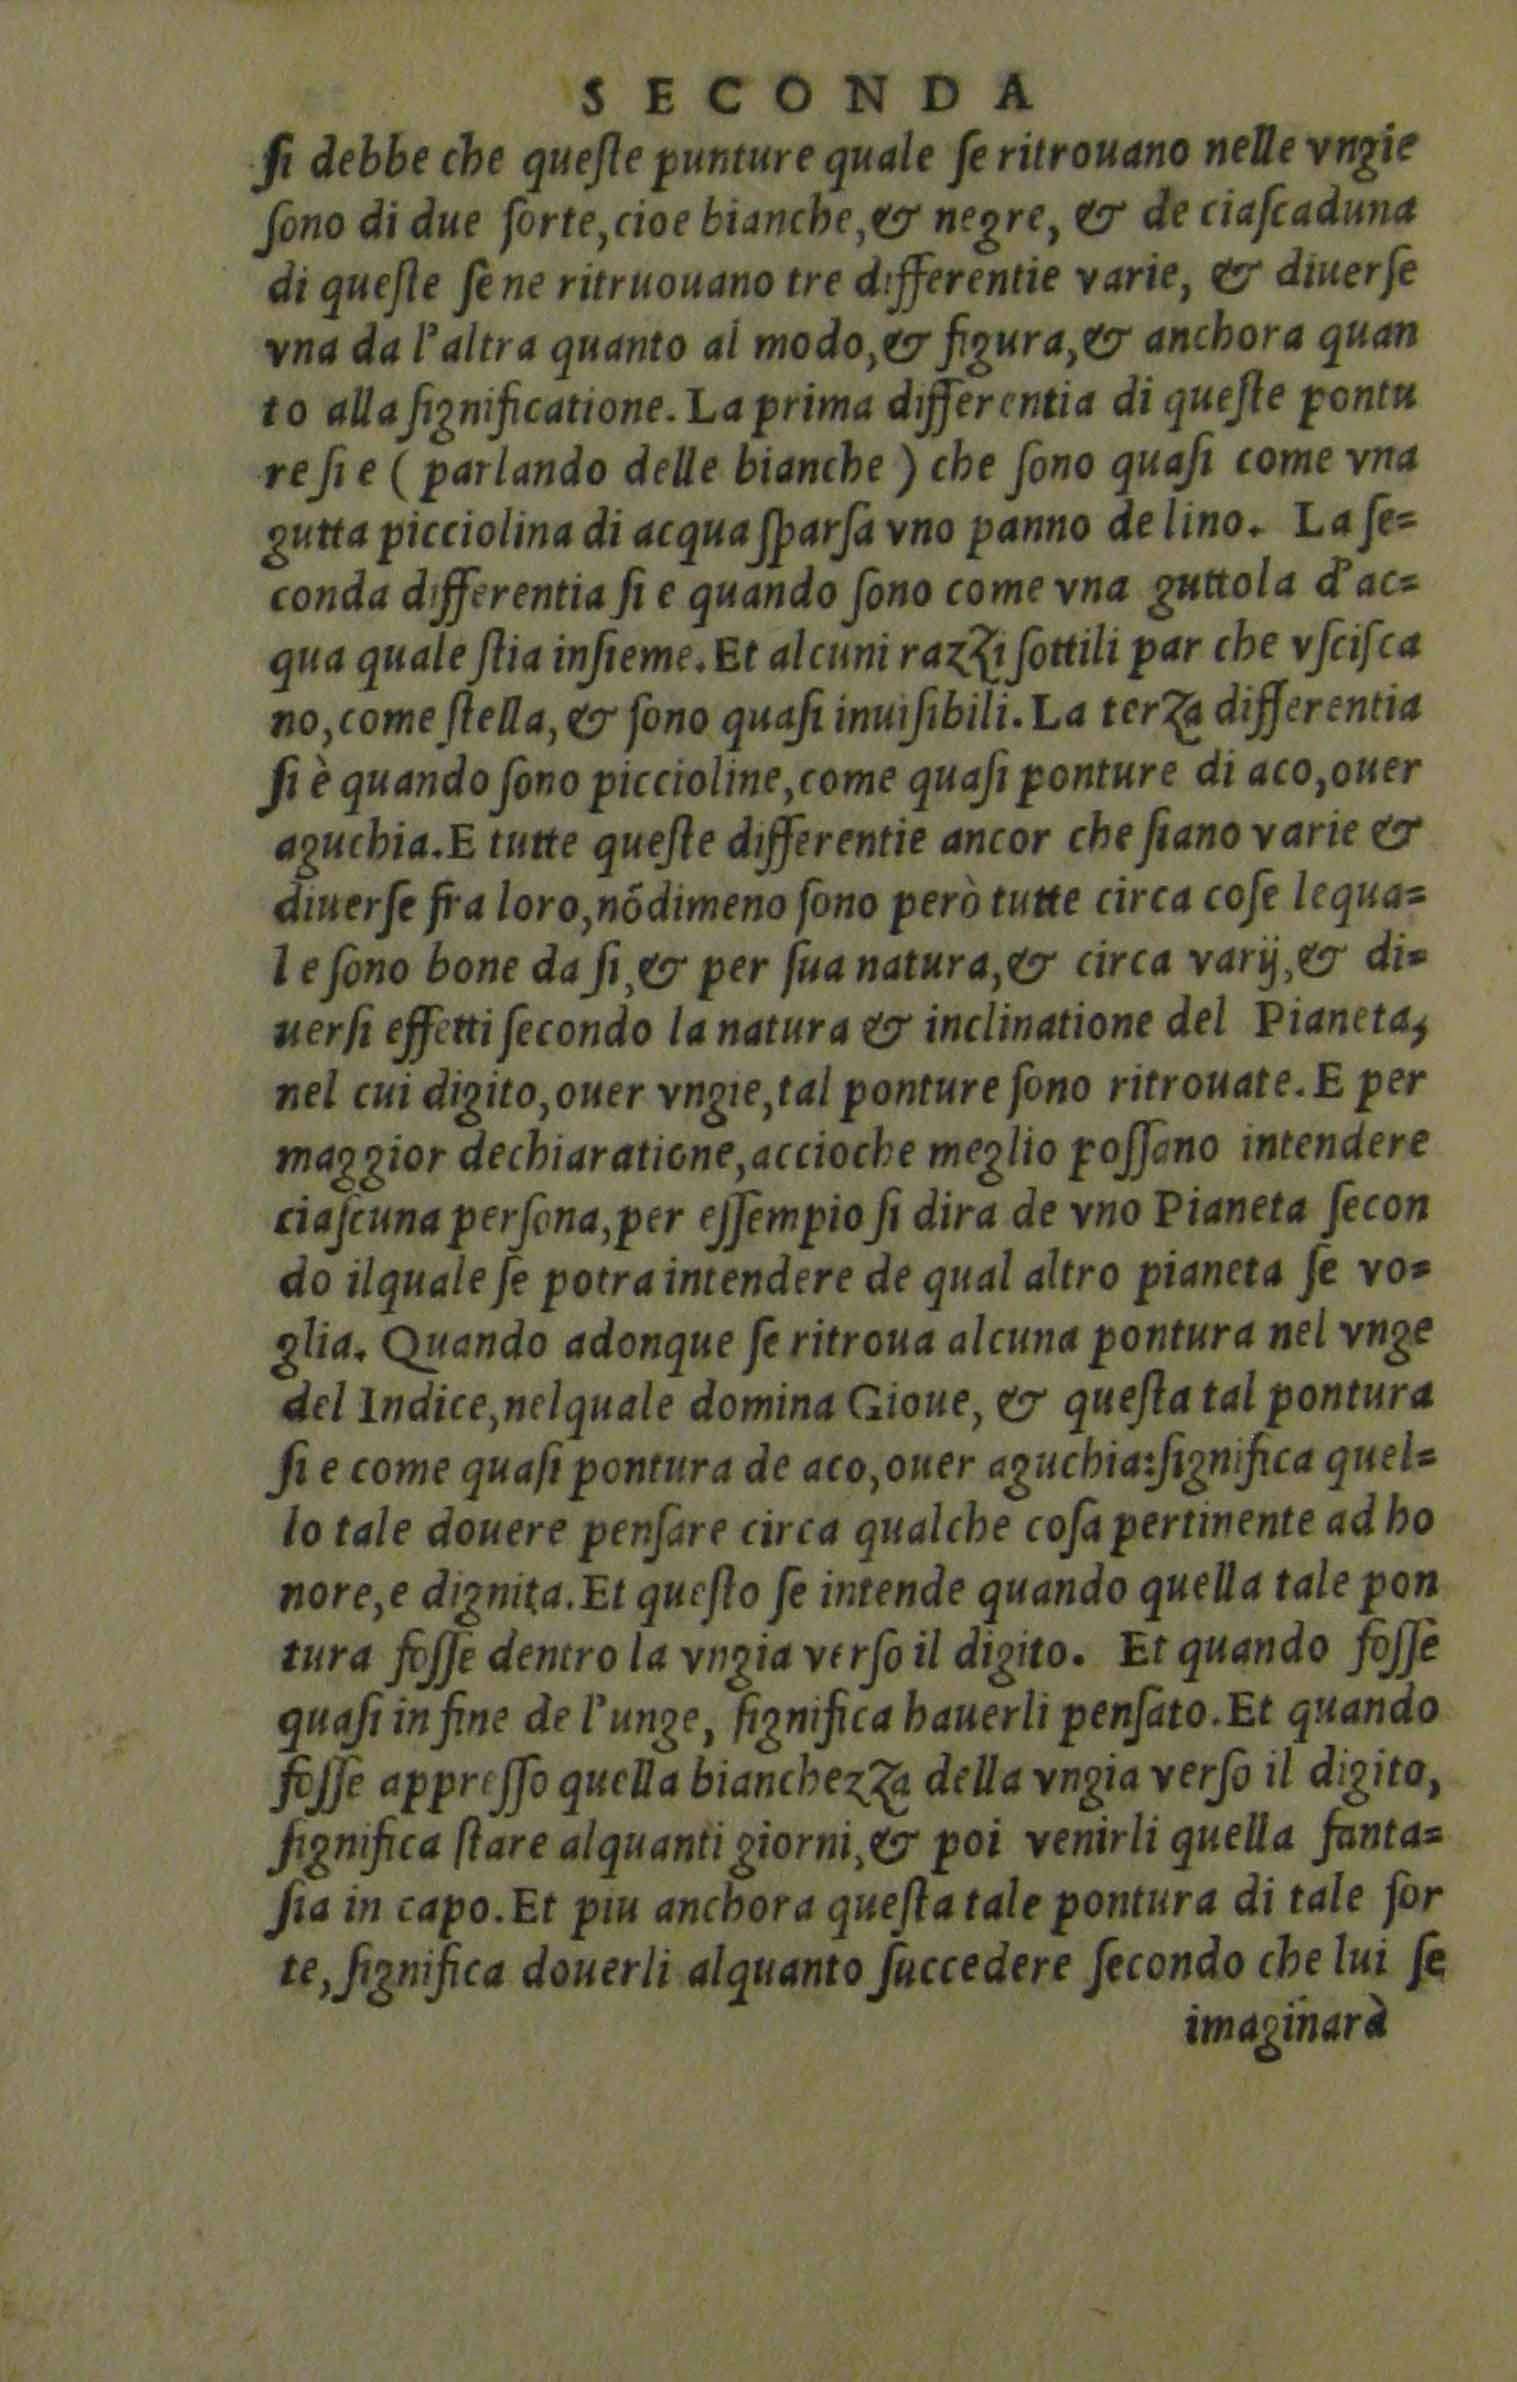 SECONDA
ſi debbe che queſte punture quale ſe ritrouano nelle vngie
ſono di due ſorte, cioe bianche, & negre, & de ciaſcaduna
di queſte ſe ne ritruouano tre differentie varie, & diuerſe
vna da l'altra quanto al modo, & figura, & anchora quan
to alla ſignificatione. La prima differentia di queſte pontu
re ſi e ( parlando delle bianche ) che ſono quaſi come vna
gutta picciolina di acqua ſparſa vno panno de lino. La ſe=
conda differentia ſi e quando ſono come vna guttola d'ac=
qua quale ſtia inſieme. Et alcuni razzi ſottili par che vſciſca
no, come ſtella, & ſono quaſi inuiſibili. La terza differentia
ſi è quando ſono piccioline, come quaſi ponture di aco, ouer
aguchia. E tutte queſte differentie ancor che ſiano varie &
diuerſe fra loro, nōdimeno ſono però tutte circa coſe lequa=
le ſono bone da ſi, & per ſua natura, & circa varij, & di=
uerſi effetti ſecondo la natura & inclinatione del Pianeta,
nel cui digito, ouer vngie, tal ponture ſono ritrouate. E per
maggior dechiaratione, accioche meglio poſſano intendere
ciaſcuna perſona, per eſſempio ſi dira de vno Pianeta ſecon
do ilquale ſe potra intendere de qual altro pianeta ſe vo=
glia. Quando adonque ſe ritroua alcuna pontura nel vnge
del Indice, nelquale domina Gioue, & queſta tal pontura
ſi e come quaſi pontura de aco, ouer aguchia: ſignifica quel=
lo tale douere penſare circa qualche coſa pertinente ad ho
nore, e dignita. Et queſto ſe intende quando quella tale pon
tura foſſe dentro la vngia verſo il digito. Et quando foſſe
quaſi in fine de l'unge, ſignifica hauerli penſato. Et quando
foſſe appreſſo quella bianchezza della vngia verſo il digito,
ſignifica ſtare alquanti giorni, & poi venirli quella fanta=
ſia in capo. Et piu anchora queſta tale pontura di tale ſor
te, ſignifica douerli alquanto ſuccedere ſecondo che lui ſe
imaginarà